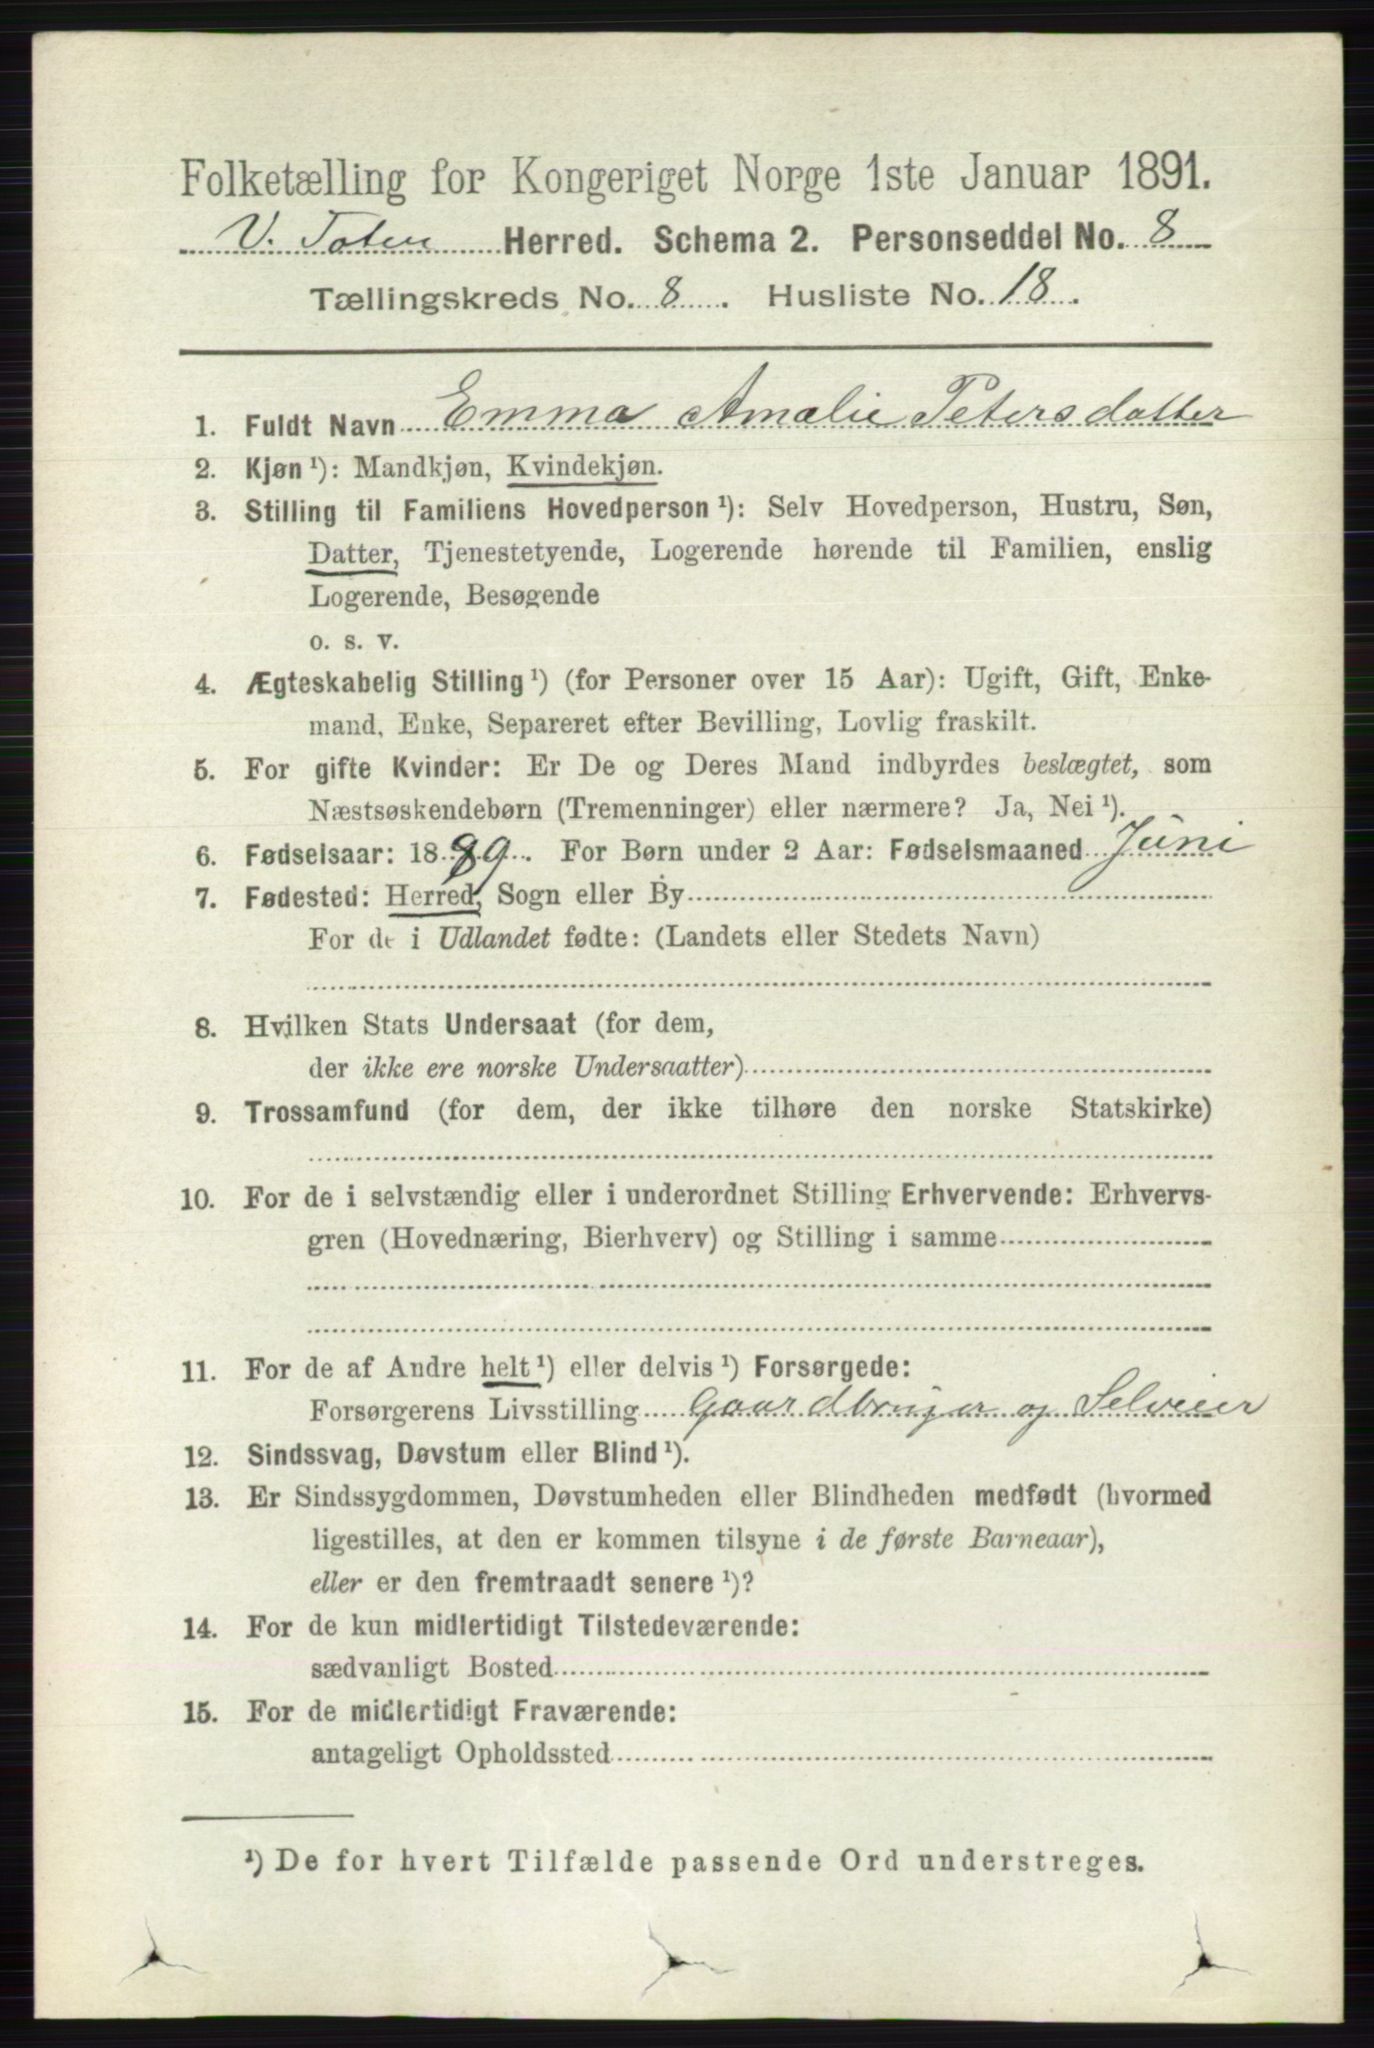 Folketælling for Kongeriget Norge 1ste Januar 1891.
V. Toten Herred. Schema 2. Personseddel No. 8
Tællingskreds No. 8. Husliste No. 18.
1. Fuldt Navn Emma Amalie Petersdatter
2. Kjøn ¹): Mandkjøn, Kvindekjøn.
3. Stilling til Familiens Hovedperson ¹): Selv Hovedperson, Hustru, Søn,
Datter, Tjenestetyende, Logerende hørende til Familien, enslig
Logerende, Besøgende
o. s. v.
4. Ægteskabelig Stilling ¹) (for Personer over 15 Aar): Ugift, Gift, Enke-
mand, Enke, Separeret efter Bevilling, Lovlig fraskilt.
5. For gifte Kvinder: Er De og Deres Mand indbyrdes beslægtet, som
Næstsøskendebørn (Tremenninger) eller nærmere? Ja, Nei ¹).
6. Fødselsaar: 1889. For Børn under 2 Aar: Fødselsmaaned Juni
7. Fødested: Herred, Sogn eller By
For de i Udlandet fødte: (Landets eller Stedets Navn)
8. Hvilken Stats Undersaat (for dem,
der ikke ere norske Undersaatter)
9. Trossamfund (for dem, der ikke tilhøre den norske Statskirke)
10. For de i selvstændig eller i underordnet Stilling Erhvervende: Erhvervs-
gren (Hovednæring, Bierhverv) og Stilling i samme
11. For de af Andre helt ¹) eller delvis ¹) Forsørgede:
Forsørgerens Livsstilling Gaardbruger og Selveier
12. Sindssvag, Døvstum eller Blind ¹).
13. Er Sindssygdommen, Døvstumheden eller Blindheden medfødt (hvormed
ligestilles, at den er kommen tilsyne i de første Barneaar),
eller er den fremtraadt senere ¹)?
14. For de kun midlertidigt Tilstedeværende:
sædvanligt Bosted
15. For de midlertidigt Fraværende:
antageligt Opholdssted
¹) De for hvert Tilfælde passende Ord understreges.